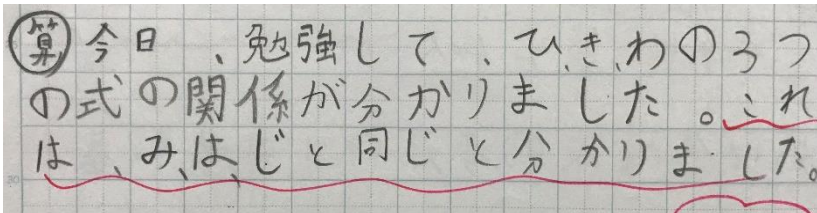 算 今日、勉強して、ひ、き、わの3つ
の式の関係が分かりました。これ
は、み、は、じと同じと分かりました。